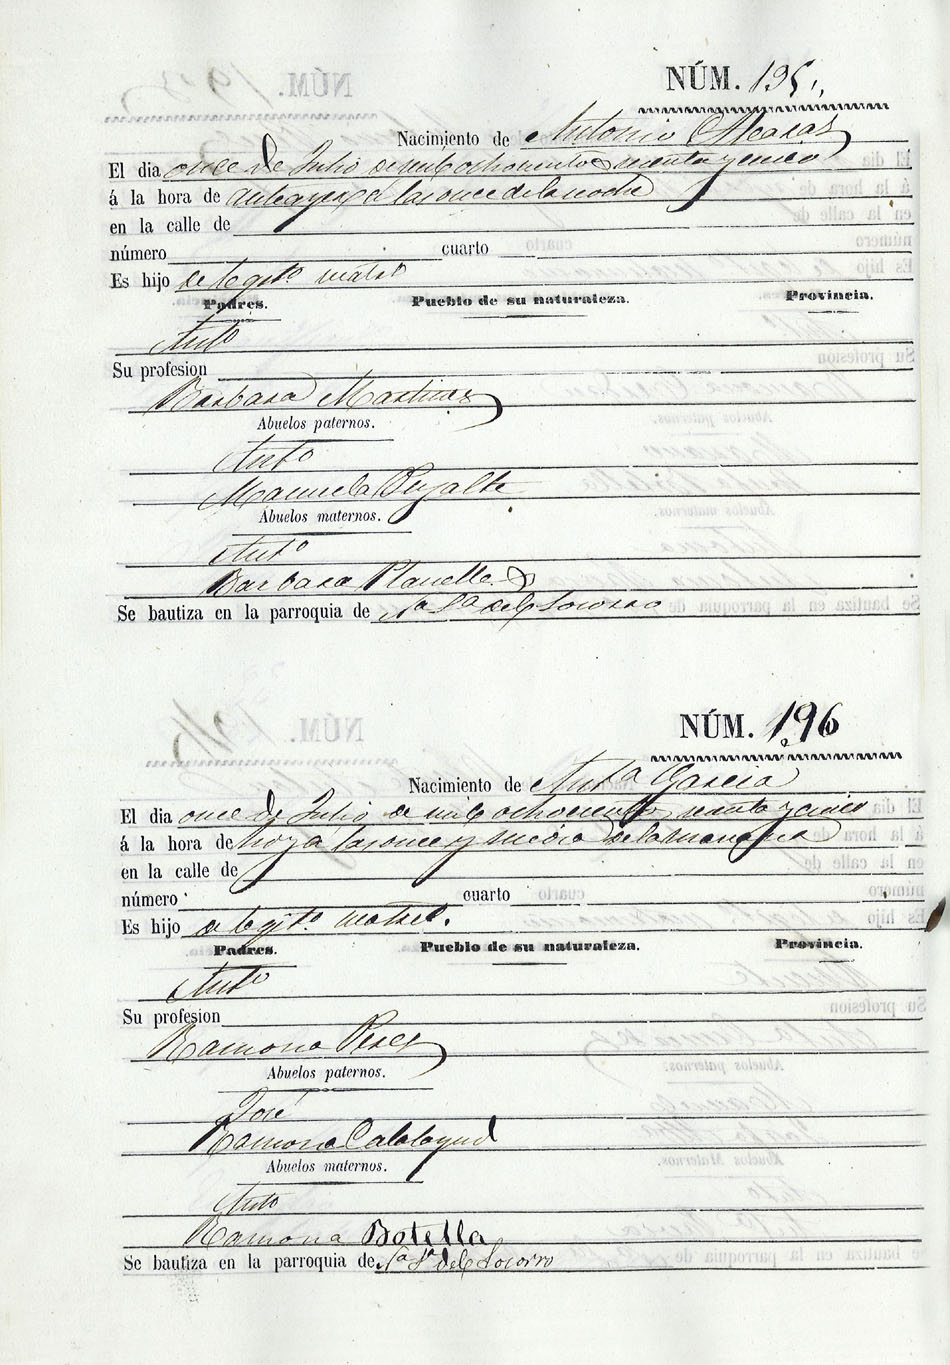 NÚM. 195.
Nacimiento de Antonio Alcaraz
El dia once de Julio de mil ochocientos sesenta y cinco
á la hora de antes ayer a las once de la noche
en la calle de
número cuarto
Es hijo de legit.º matr.º
Padres. Pueblo de su naturaleza. Provincia.
Ant.º
Su profesion
Barbara Martinez
Abuelos paternos.
Ant.º
Manuela Pujalte
Abuelos maternos.
Ant.º
Barbara Planelles
Se bautiza en la parroquia de N.ª S.ª del Socorro
NÚM. 196
Nacimiento de Ant.ª Garcia
El dia once de Julio de mil ochocientos sesenta y cinco
á la hora de hoy a las once y media de la mañana
en la calle de
número cuarto
Es hijo de legit.º matr.º
Padres. Pueblo de su naturaleza. Provincia.
Ant.º
Su profesion
Ramona Perez
Abuelos paternos.
José
Ramona Calatayud
Abuelos maternos.
Ant.º
Ramona Botella
Se bautiza en la parroquia de N.ª S.ª del Socorro